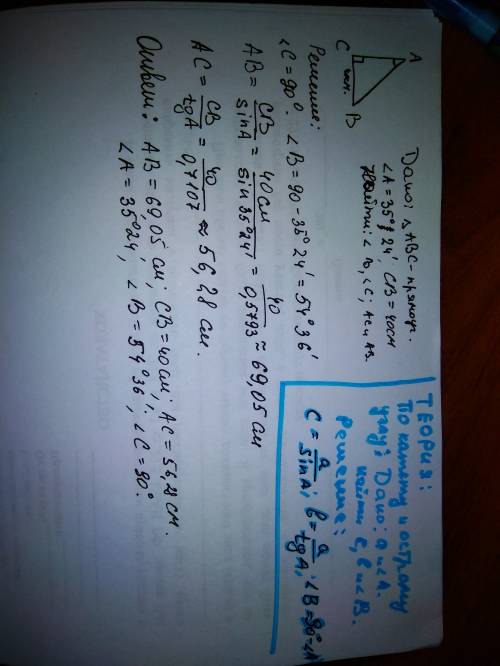 A
C
B
40см.
Дано: △ABC - прямоуг.
∠A = 35°24′ CB = 40см
Найти: ∠B, ∠C; AC и AB.
Решение:
∠C = 90°. ∠B = 90 - 35°24′ = 54°36′
AB = CB/sinA = 40см/sin 35°24′ = 40/0,5793 ≈ 69,05 см
AC = CB/tgA = 40/0,7107 ≈ 56,28 см.
Ответ: AB = 69,05 см; CB = 40см; AC = 56,28 см.
∠A = 35°24′, ∠B = 54°36′, ∠C = 90°.
ТЕОРИЯ:
По катету и острому
углу: Дано: a и ∠A.
Найти c, b и ∠B.
Решение:
c = a/sinA; b = a/tgA; ∠B = 90° - ∠A